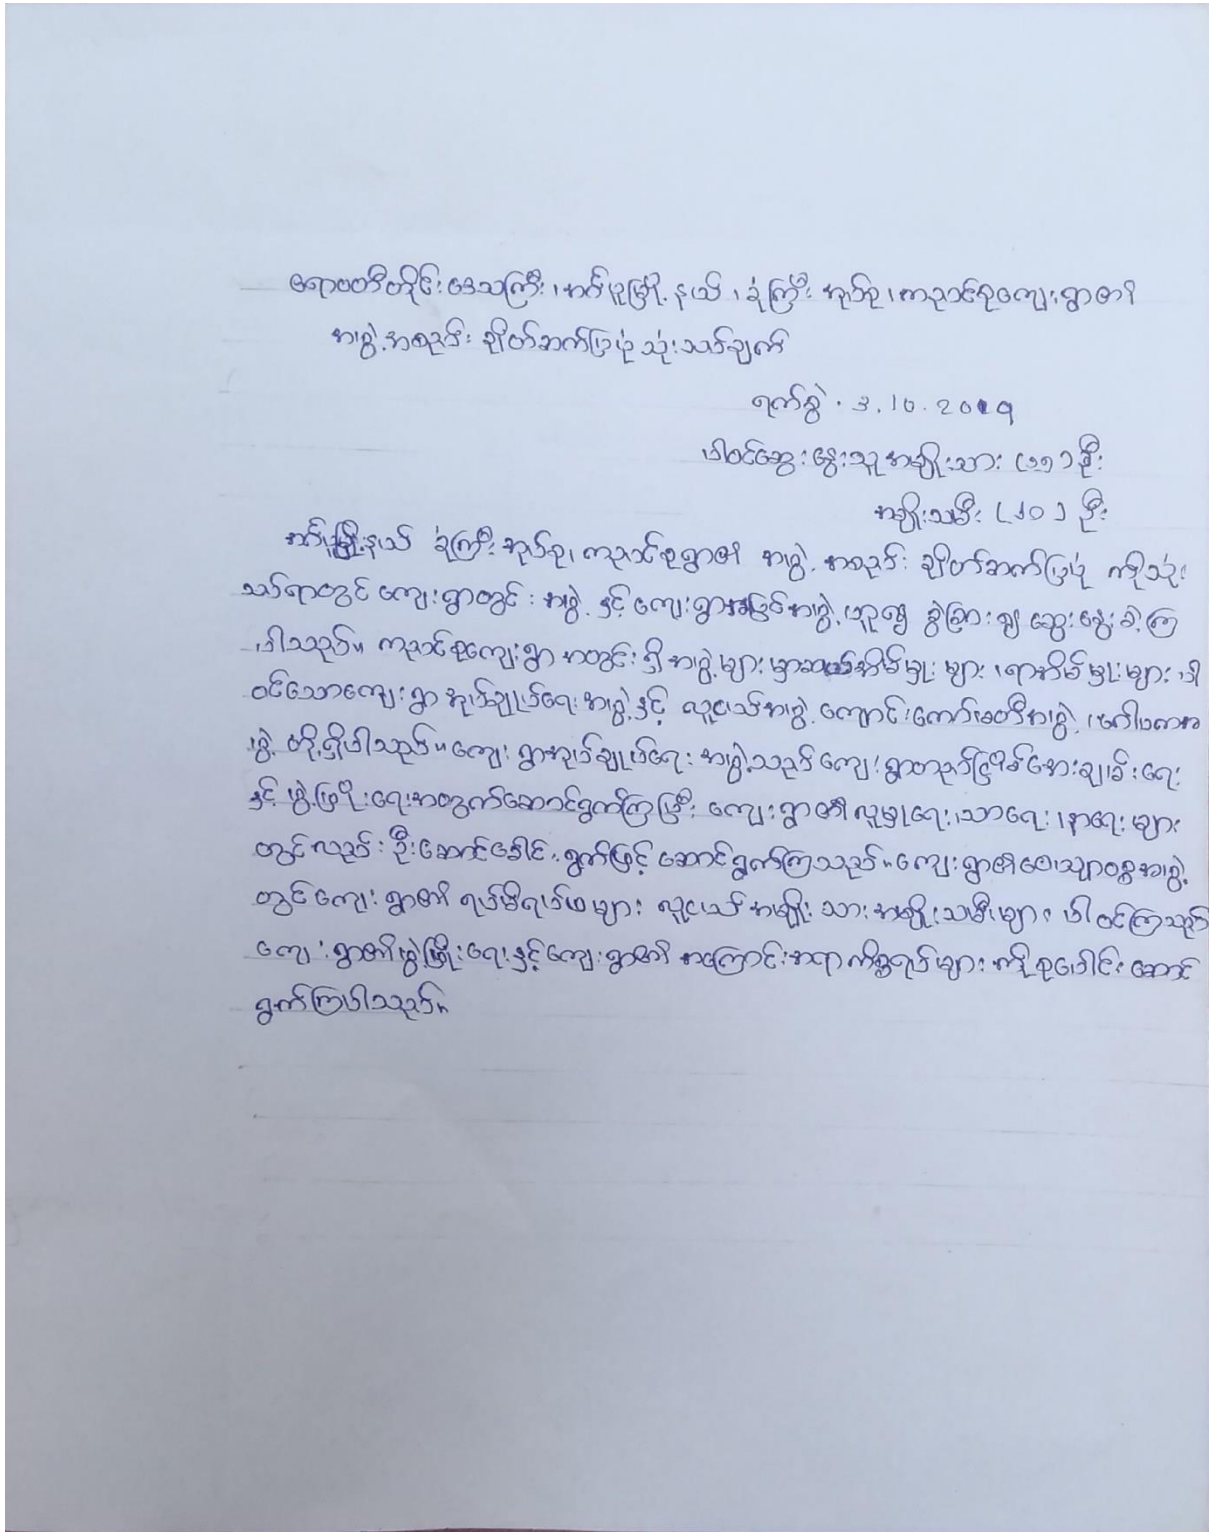 ဧရာဝတီတိုင်းဒေသကြီး၊ အင်္ဂပူမြို့နယ်၊ ခုံကြီး အုပ်စု၊ ကညင်စုကျေးရွာ၏
အဖွဲ့အစည်း ချိတ်ဆက်ပြပုံ သုံးသပ်ချက်
ရက်စွဲ . 3.10.2019
ပါဝင်ဆွေးနွေးသူ အမျိုးသား (၁၅) ဦး
အမျိုးသမီး (၂၀) ဦး
မြို့နယ် ခုံကြီး အုပ်စု၊ ကညင်စုရွာ၏ အဖွဲ့အစည်း ချိတ်ဆက်ပြပုံ ကိုသုံး
သပ်ရာတွင် ကျေးရွာတွင်း အဖွဲ့ နှင့် ကျေးရွာအပြင်အဖွဲ့ ဟူ၍ ခွဲခြား၍ ဆွေးနွေးခဲ့ကြ
ပါသည်။ ကညင်စုကျေးရွာ အတွင်းရှိ အဖွဲ့များမှာဆယ်အိမ်မှုးများ၊ ရာအိမ်မှုးများ ပါ
ဝင်သောကျေးရွာ အုပ်ချုပ်ရေးအဖွဲ့နှင့် လူငယ်အဖွဲ့ ကျောင်းကော်မတီအဖွဲ့၊ ဂေါပကအ
ဖွဲ့ တို့ရှိပါသည်။ ကျေးရွာအုပ်ချုပ်ရေး အဖွဲ့သည် ကျေးရွာတည်ငြိမ်အေးချမ်းရေး
နှင့် ဖွံ့ဖြိုးရေးအတွက်ဆောင်ရွက်ကြပြီး ကျေးရွာ၏လူမှုရေး၊ သာရေး၊ နာရေးများ
တွင်လည်း ဦးဆောင်ခေါင်းရွက်ဖြင့် ဆောင်ရွက်ကြသည်။ ကျေးရွာ၏ဝေယျာဝစ္စအဖွဲ့
တွင်ကျေးရွာ၏ ရပ်မိရပ်ဖများ လူငယ် အမျိုးသားအမျိုးသမီးများ ပါဝင်ကြသည်
ကျေးရွာ၏ဖွံ့ဖြိုးရေးနှင့်ကျေးရွာ၏ အကြောင်းအရာကိစ္စရပ်များ ကိုစုပေါင်းဆောင်
ရွက်ကြပါသည်။